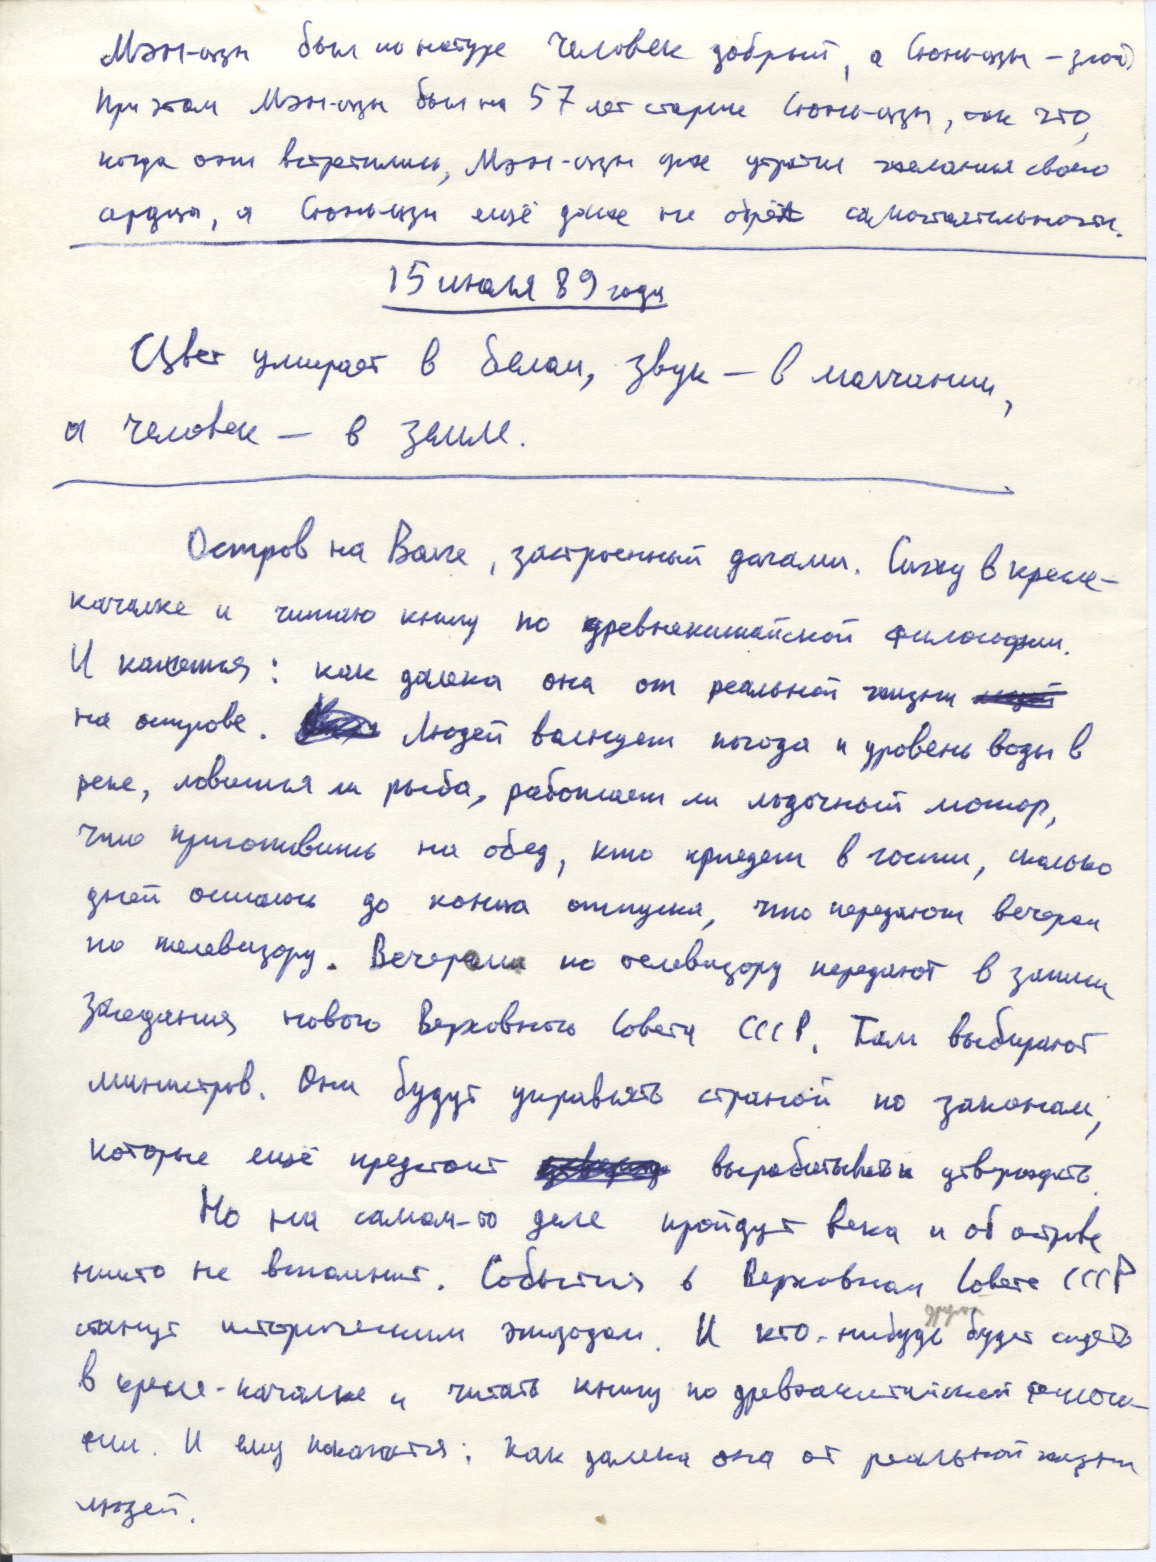 Мэн-цзы был по натуре человек добрый, а Сюнь-цзы – злой.
При этом Мэн-цзы был на 57 лет старше Сюнь-цзы, так что,
когда они встретились, Мэн-цзы уже утратил желания своего
сердца, а Сюнь-цзы ещё даже не обрёл самостоятельности.
15 июля 89 года
Цвет умирает в белом, звук – в молчании,
а человек – в земле.
Остров на Волге, застроенный дачами. Сижу в кресле-
качалке и читаю книгу по древнекитайской философии.
И кажется: как далека она от реальной жизни
на острове. Людей волнует погода и уровень воды в
реке, ловится ли рыба, работает ли лодочный мотор,
что приготовить на обед, кто приедет в гости, сколько
дней осталось до конца отпуска, что передают вечером
по телевизору. Вечерами по телевизору передают в записи
заседания нового Верховного Совета СССР. Там выбирают
министров. Они будут управлять страной по законам,
которые ещё предстоит вырабатывать и утверждать.
Но на самом-то деле пройдут века и об острове
никто не вспомнит. События в Верховном Совете СССР
станут историческим эпизодом. И кто-нибудь другой будет сидеть
в кресле-качалке и читать книгу по древнекитайской филосо-
фии. И ему покажется: как далека она от реальной жизни
людей.